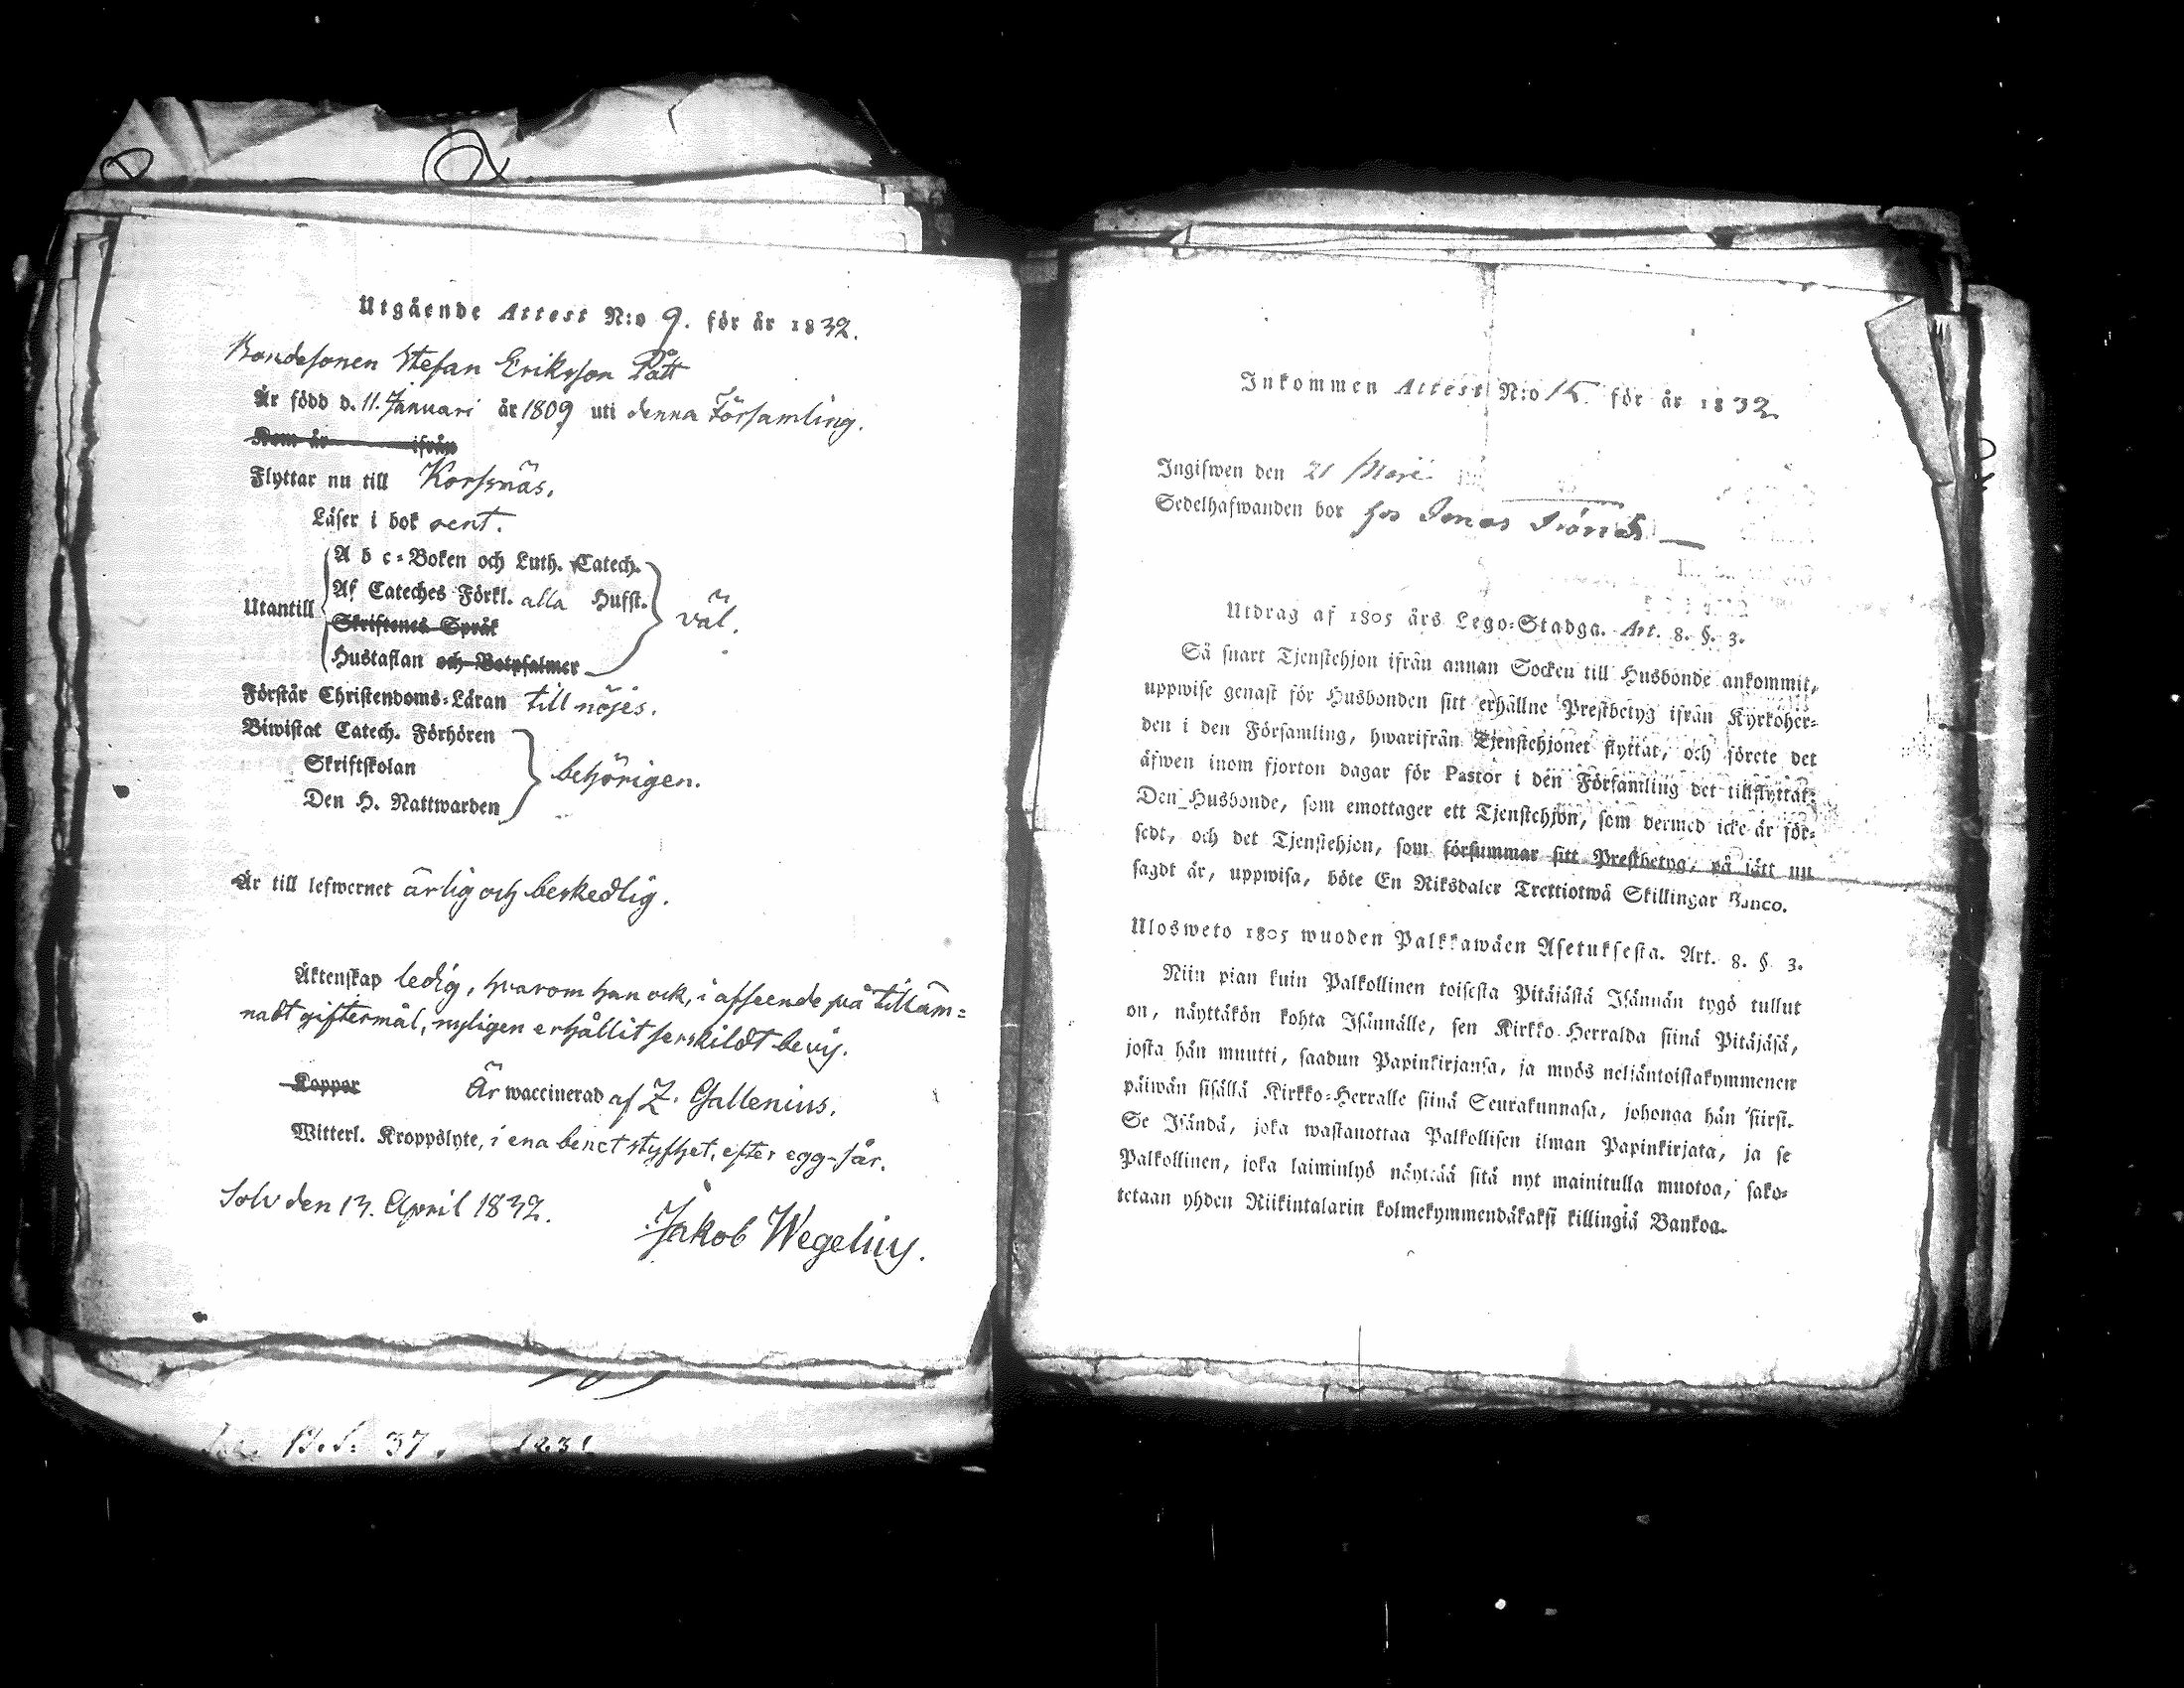 Utgående Attest N:o 9. för år 1832.
Bondesonen Stefan Eriksson Pått
Är född d. 11. Januari år 1809 uti denna Församling.
Kom år ifrån
Flyttar nu till Korsnäs.
Läser i bok rent.
Utantill
A b c-Boken och Luth. Catech.
Af Cateches Förkl. alla Husst.
Skriftenes Språk
Hustaflan och Botpsalmer
väl.
Förstår Christendoms-Läran till nöjes.
Biwistat Catech. Förhören
Skriftskolan
Den H. Nattwarden
behörigen.
Är till lefwernet ärlig och beskedlig.
Äktenskap ledig, hvarom han ock, i afseende på tilläm-
nadt giftermål, nyligen erhållit serskildt bevis.
Koppor Är waccinerad af Z. Gallenius.
Witterl. Kroppslyte, i ena benet styfhet, efter egg-sår.
Solv den 13. April 1832.
Jakob Wegelius.
37.
Inkommen Attest N:o för år 1832
Ingifwen den 21
Sedelhafwanden bor hos Jonas
Utdrag af 1805 års Lego-Stadga. Art. 8. §. 3.
Så snart Tjenstehjon ifrån annan Socken till Husbonde ankommit,
uppwise genast för Husbonden sitt erhållne Prestbetyg ifrån Kyrkoher-
den i den Församling, hwarifrån Tjenstehjonet flyttat, och förete det
äfwen inom fjorton dagar för Pastor i den Församling det tillflyttat:
Den Husbonde, som emottager ett Tjenstehjon, som dermed icke är för-
sedt, och det Tjenstehjon, som försummar sitt Prestbetyg, på sätt nu
sagdt är, uppwisa, böte En Riksdaler Trettiotwå Skillingar Banco.
Ulosweto 1805 wuoden Palkkawäen Asetuksesta. Art. 8. § 3.
Niin pian kuin Palkollinen toisesta Pitäjästä Isännän tygö tullut
on, näyttäkön kohta Isännälle, sen Kirkko-Herralda siinä Pitäjäsä,
josta hän muutti, saadun Papinkirjansa, ja myös neljäntoistakymmenen
päiwän sisällä Kirkko-Herralle siinä Seurakunnasa, johonga hän siirsi.
Se Isändä, joka wastanottaa Palkollisen ilman Papinkirjata, ja se
Palkollinen, joka laiminlyö näyttää sitä nyt mainitulla muotoa, sako-
tetaan yhden Riikintalarin kolmekymmendäkaksi killingiä Bankoa.